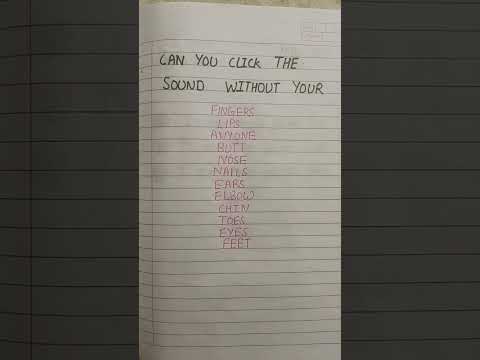 CAN YOU CLICK THE
SOUND WITHOUT YOUR
FINGERS
LIPS
ANYONE
BUTT
NOSE
NAILS
EARS
ELBOW
CHIN
TOES
EYES
FEET